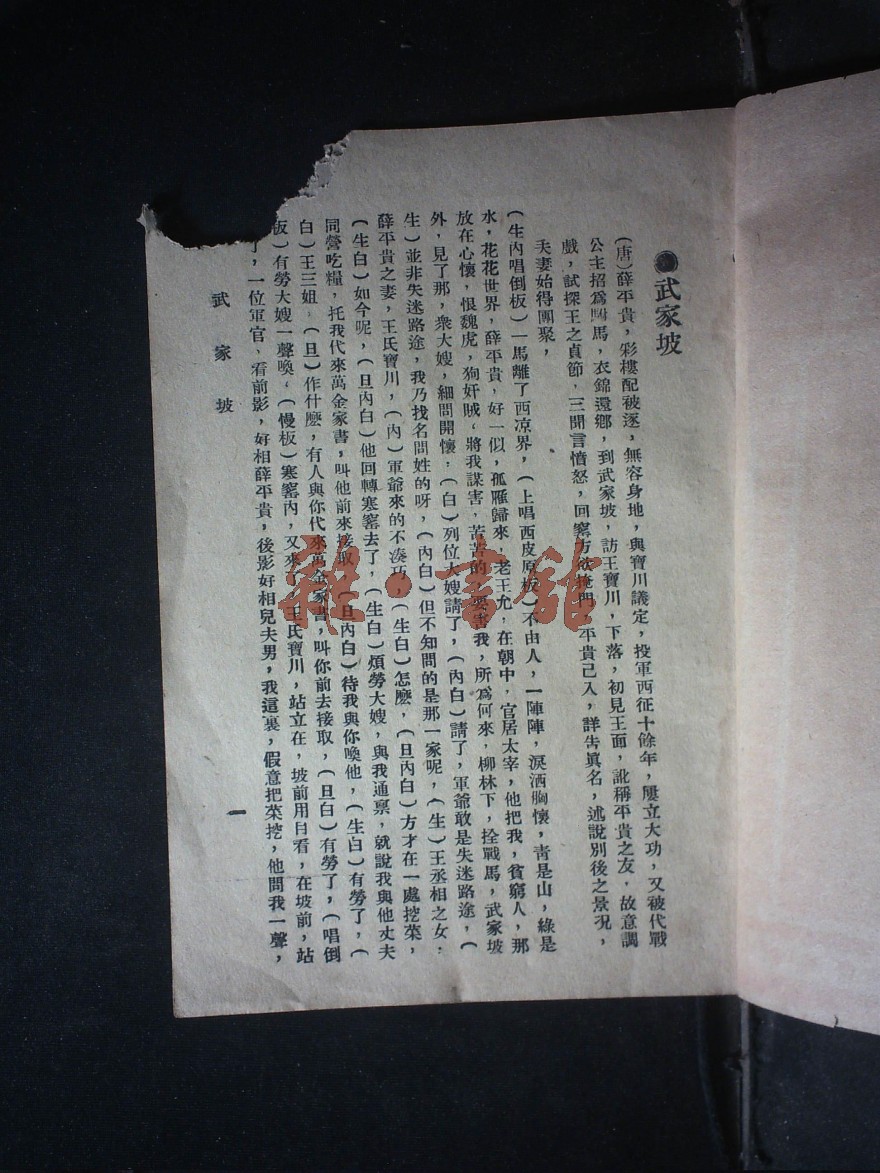 ●武家坡
(唐)薛平貴，彩樓配被逐，無容身地，與寶川議定，投軍西征十餘年，屢立大功，又被代戰
公主招爲駙馬，衣錦還鄉，到武家坡，訪王寶川，下落，初見王面，訛稱平貴之友，故意調
戲，試探王之貞節，三聞言憤怒，回窰方欲掩門，平貴已入，詳告眞名，述說別後之景况，
夫妻始得團聚，
(生內唱倒板)一馬離了西凉界，(上唱西皮原板)不由人，一陣陣，淚洒胸懷，青是山，綠是
水，花花世界，薛平貴，好一似，孤雁歸來，老王允，在朝中，官居太宰，他把我，貧窮人，那
放在心懷，恨魏虎，狗奸賊，將我謀害，苦苦的，要害我，所爲何來，柳林下，拴戰馬，武家坡
外，見了那，衆大嫂，細問開懷，(白)列位大嫂請了，(內白)請了，軍爺敢是失迷路途，(
生)並非失迷路途，我乃找名問姓的呀，(內白)但不知問的是那一家呢，(生)王丞相之女，
薛平貴之妻，王氏寶川，(內)軍爺來的不湊巧，(生白)怎麽，(旦內白)方才在一處挖菜，
(生白)如今呢，(旦內白)他回轉寒窰去了，(生白)煩勞大嫂，與我通禀，就說我與他丈夫
同營吃糧，托我代來萬金家書，叫他前來接取，(旦內白)待我與你喚他，(生白)有勞了，(
白)王三姐，(旦)作什麽，有人與你代來萬金家書，叫你前去接取，(旦白)有勞了，(唱倒
板)有勞大嫂一聲喚，(慢板)寒窰內，又來了，王氏寶川，站立在，坡前用目看，在坡前，站
了，一位軍官，看前影，好相薛平貴，後影好相兒夫男，我這裏，假意把菜挖，他問我一聲，
武家坡
一
雜·書館